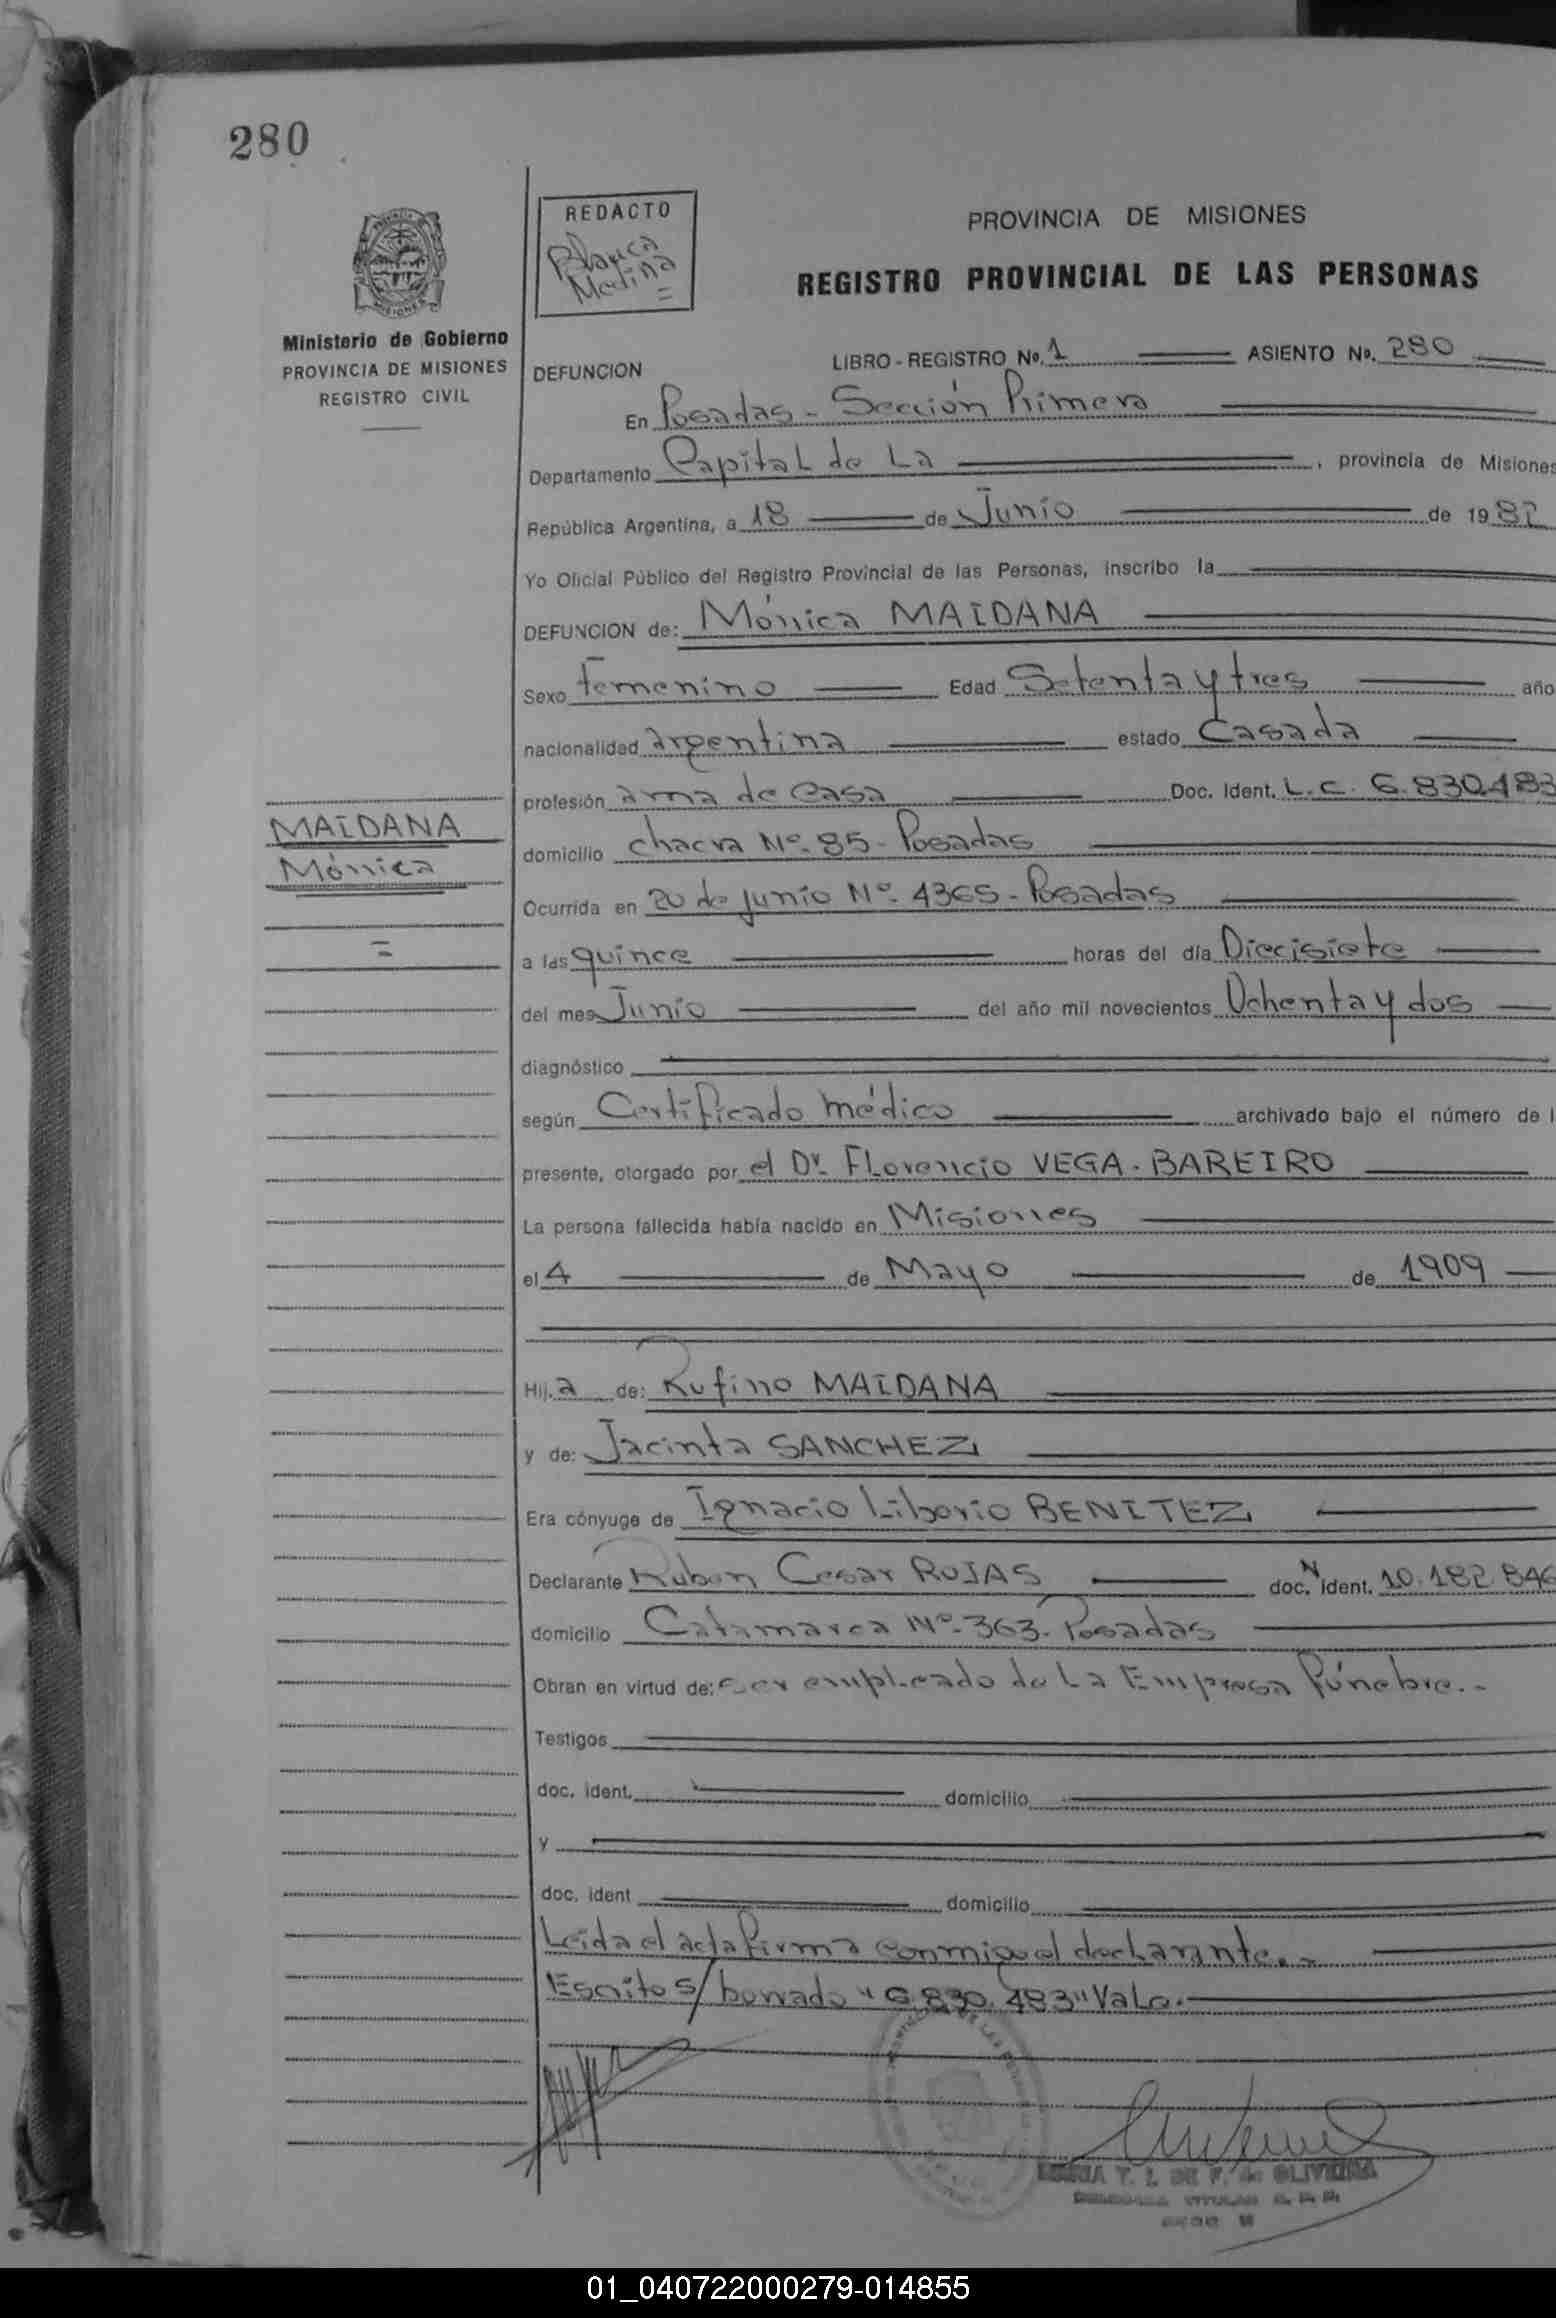 280
REDACTO
Blanca
Medina
=
PROVINCIA DE MISIONES
REGISTRO PROVINCIAL DE LAS PERSONAS
Ministerio de Gobierno
PROVINCIA DE MISIONES
REGISTRO CIVIL
LIBRO - REGISTRO No. 1 ASIENTO No. 280
DEFUNCION
En Posadas - Sección Primera
Departamento Capital de La , provincia de Misiones
República Argentina, a 18 de Junio de 1982
Yo Oficial Público del Registro Provincial de las Personas, inscribo la
DEFUNCION de: Mónica MAIDANA
Sexo Femenino Edad Setenta y tres año
nacionalidad argentina estado Casada
profesión ama de casa Doc. Ident. L.C. 6.830.483
MAIDANA
Mónica
=
domicilio chacra No. 85 - Posadas
Ocurrida en 20 de junio No. 4365 - Posadas
a las quince horas del día Diecisiete
del mes Junio del año mil novecientos Ochenta y dos
diagnóstico
según Certificado médico archivado bajo el número de l
presente, otorgado por el Dr. Florencio VEGA - BAREIRO
La persona fallecida había nacido en Misiones
el 4 de Mayo de 1909
Hij.a de: Rufino MAIDANA
y de: Jacinta SANCHEZ
Era cónyuge de Ignacio Liborio BENITEZ
Declarante Ruben Cesar ROJAS doc. N ident. 10.182.846
domicilio Catamarca No. 363 - Posadas
Obran en virtud de: ser empleado de La Empresa Fúnebre.-
Testigos
doc. ident. domicilio
y
doc. ident domicilio
Leida el acta firma conmigo el declarante.-
Escrito s/ borrado "6.830.483" Vale.-
MARIA T. I. DE F. de OLIVEIRA
01_040722000279-014855